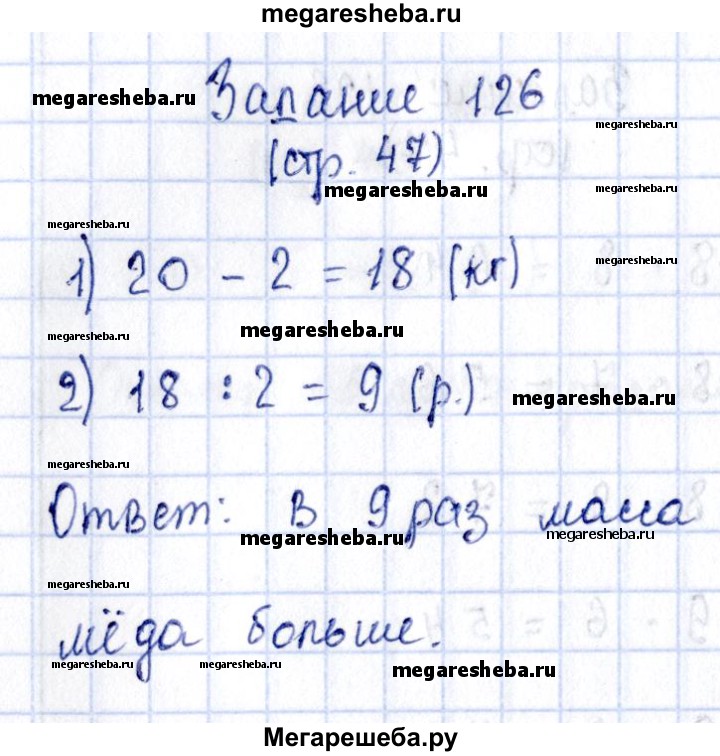 megaresheba.ru
megaresheba.ru
Задание 126
megaresheba.ru
(стр. 47)
megaresheba.ru
megaresheba.ru
megaresheba.ru
1) 20 - 2 = 18 (кг)
megaresheba.ru
megaresheba.ru
megaresheba.ru
2) 18 : 2 = 9 (р.)
megaresheba.ru
megaresheba.ru
Ответ: в 9 раз масса
megaresheba.ru
megaresheba.ru
megaresheba.ru
мёда больше.
megaresheba.ru
megaresheba.ru
megaresheba.ru
Мегарешеба.ру